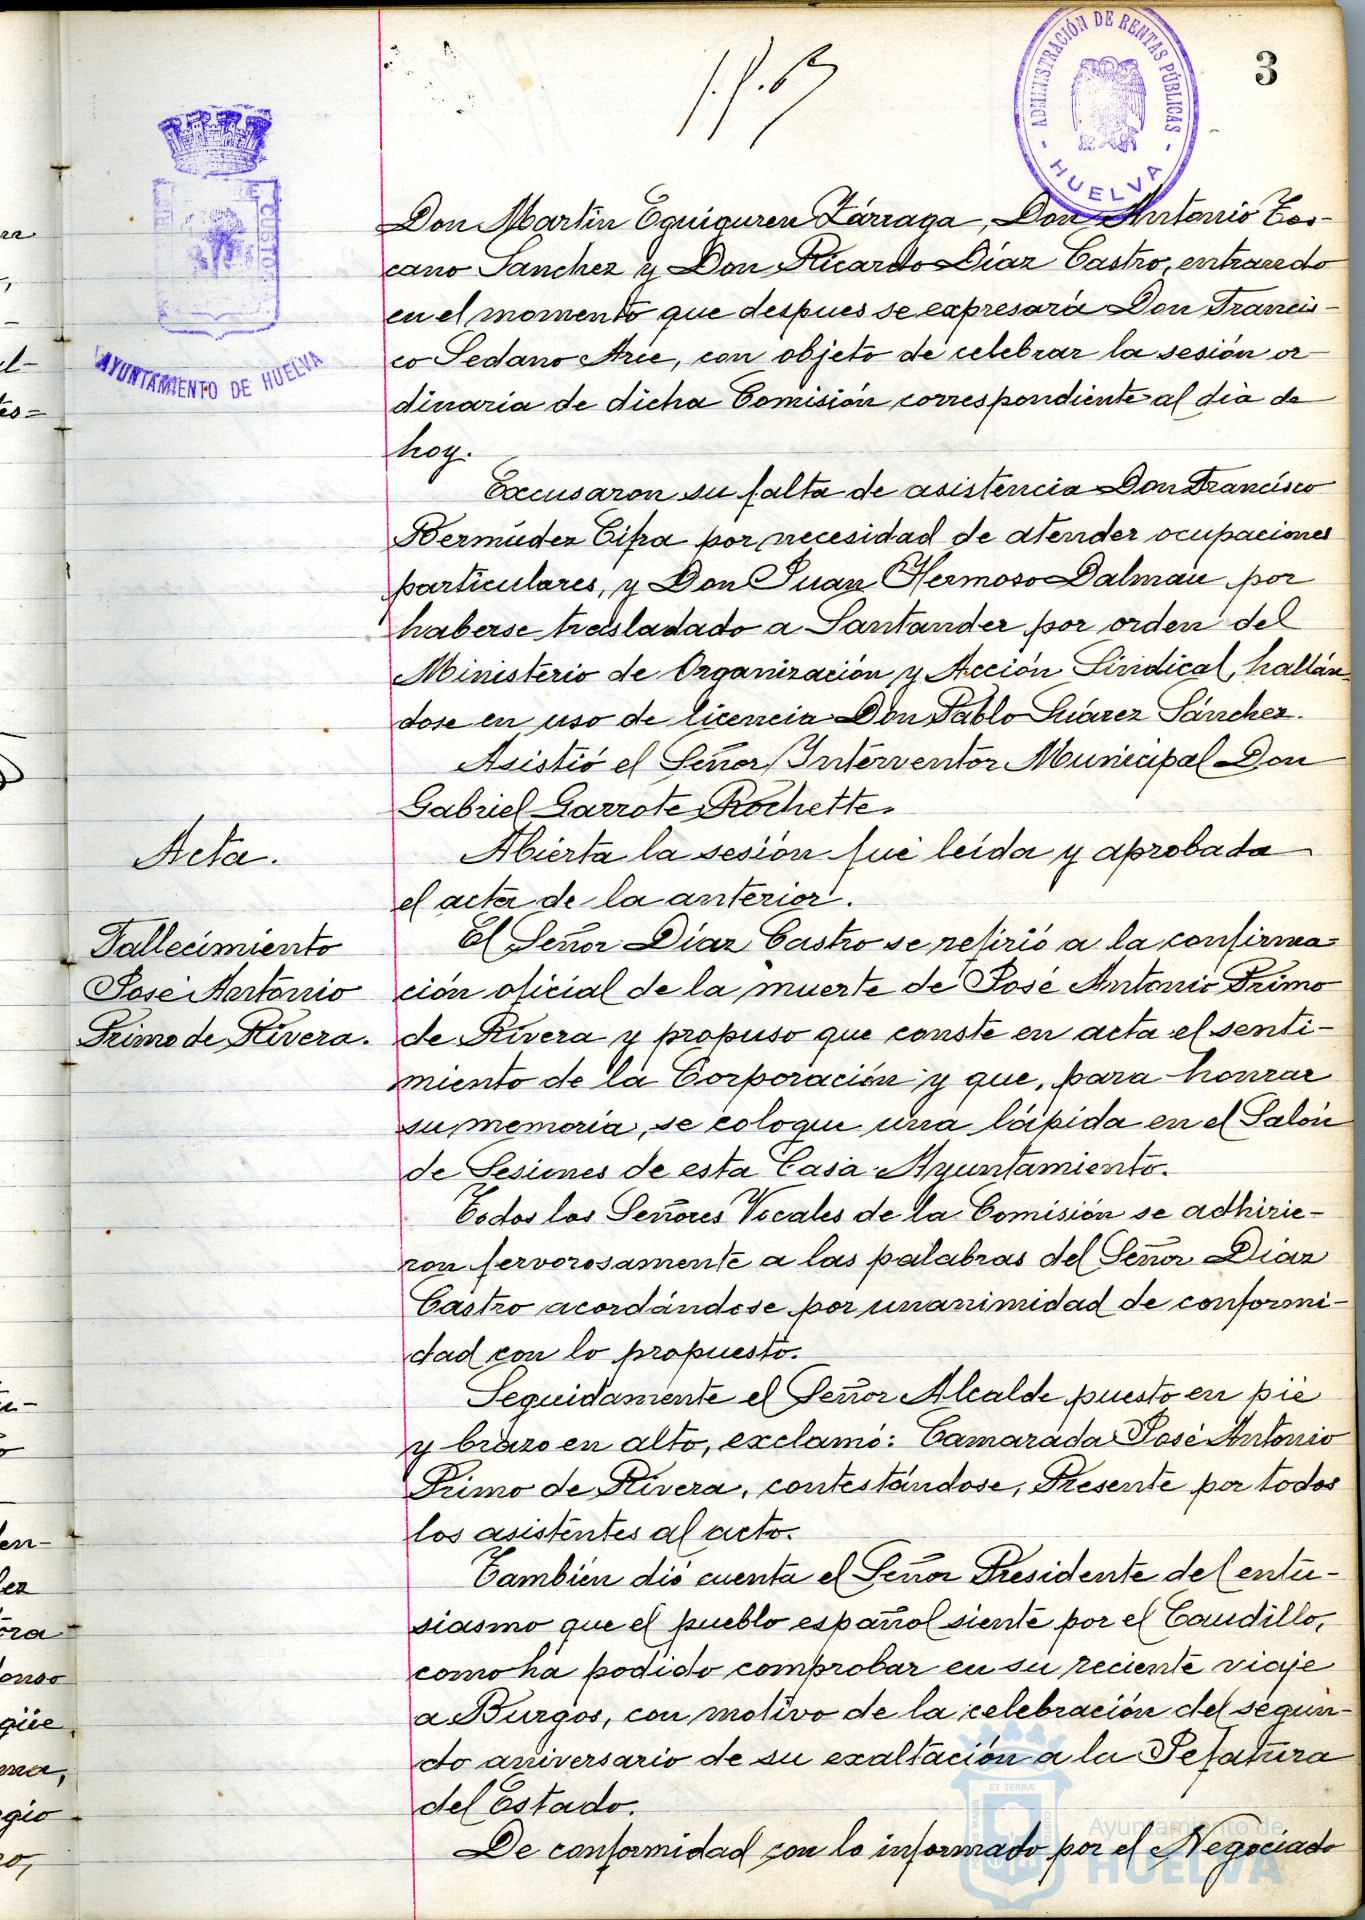 3
ADMINISTRACIÓN DE RENTAS PÚBLICAS
HUELVA
AYUNTAMIENTO DE HUELVA
Don Martín Eguiguren Zárraga, Don Antonio Tos-
cano Sanchez y Don Ricardo Díaz Castro, entrando
en el momento que despues se expresará Don Francis-
co Sedano Arce, con objeto de celebrar la sesión or-
dinaria de dicha Comisión correspondiente al día de
hoy.
Excusaron su falta de asistencia Don Francisco
Bermúdez Cifra por necesidad de atender ocupaciones
particulares, y Don Juan Hermoso Dalmau por
haberse trasladado a Santander por orden del
Ministerio de Organización y Acción Sindical, hallán-
dose en uso de licencia Don Pablo Suárez Sánchez.
Asistió el Señor Interventor Municipal Don
Gabriel Garrote Rochette.
Acta.
Abierta la sesión fué leída y aprobada
el acta de la anterior.
Fallecimiento
José Antonio
Primo de Rivera.
El Señor Díaz Castro se refirió a la confirma=
ción oficial de la muerte de José Antonio Primo
de Rivera y propuso que conste en acta el senti-
miento de la Corporación y que, para honrar
su memoria, se coloque una lápida en el Salón
de Sesiones de esta Casa Ayuntamiento.
Todos los Señores Vocales de la Comisión se adhirie-
ron fervorosamente a las palabras del Señor Díaz
Castro acordándose por unanimidad de conformi-
dad con lo propuesto.
Seguidamente el Señor Alcalde puesto en pié
y brazo en alto, exclamó: Camarada José Antonio
Primo de Rivera, contestándose, Presente por todos
los asistentes al acto.
También dió cuenta el Señor Presidente del entu-
siasmo que el pueblo español siente por el Caudillo,
como ha podido comprobar en su reciente viaje
a Burgos, con motivo de la celebración del segun-
do aniversario de su exaltación a la Jefatura
del Estado.
De conformidad con lo informado por el Negociado
Ayuntamiento de
HUELVA